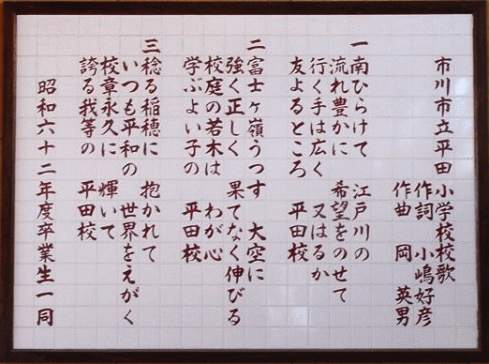 市川市立平田小学校校歌
作詞 小嶋好彦
作曲 岡 英男
一 南ひらけて 江戸川の
流れ豊かに 希望をのせて
行く手は広く 又はるか
友よるところ 平田校
二 富士ヶ嶺うつす 大空に
強く正しく 果てなく伸びる
校庭の若木は わが心
学ぶよい子の 平田校
三 稔る稲穂に 抱かれて
いつも平和の 世界をえがく
校章永久に 輝いて
誇る我等の 平田校
昭和六十二年度卒業生一同